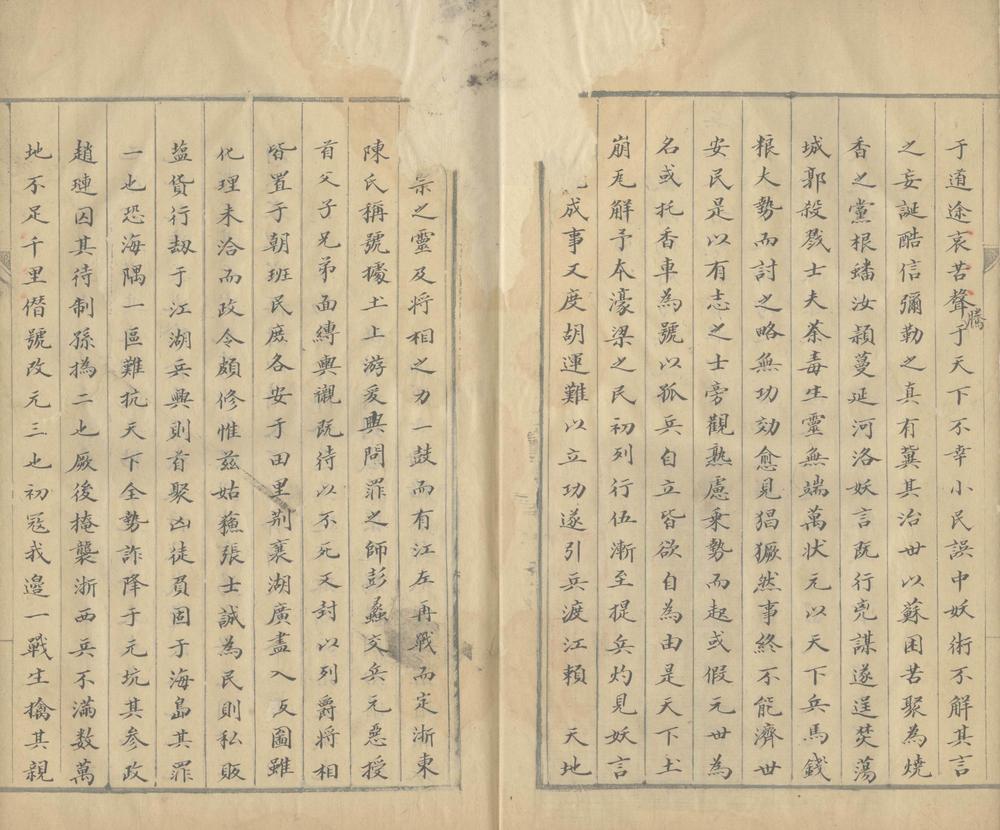 于道途哀苦聲騰于天下不幸小民誤中妖術不解其言
之妄誕酷信彌勒之真有冀其治世以蘇困苦聚為燒
香之黨根蟠汝潁蔓延河洛妖言既行兇謀遂逞焚蕩
城郭殺戮士夫荼毒生靈無端萬狀元以天下兵馬錢
粮大勢而討之略無功効愈見猖獗然事終不能濟世
安民是以有志之士旁觀熟慮乗勢而起或假元世為
名或托香車為號以孤兵自立皆欲自為由是天下土
崩瓦解予本濠梁之民初列行伍漸至提兵灼見妖言
成事又度胡運難以立功遂引兵渡江頼 天地
宗之靈及将相之力一鼓而有江左再戰而定浙東
陳氏稱號據土上游爰興問罪之師彭蠡交兵元惡授
首父子兄弟面縛輿襯既待以不死又封以列爵将相
皆置于朝班民庶各安于田里荊襄湖廣盡入版圖雖
化理未洽而政令頗修惟兹姑蘓張士誠為民則私販
盐貨行刼于江湖兵興則首聚凶徒負固于海島其罪
一也恐海隅一區難抗天下全勢詐降于元坑其参政
趙璉囚其待制孫撝二也厥後掩襲浙西兵不滿数萬
地不足千里僭號改元三也初冦我邉一戰生擒其親